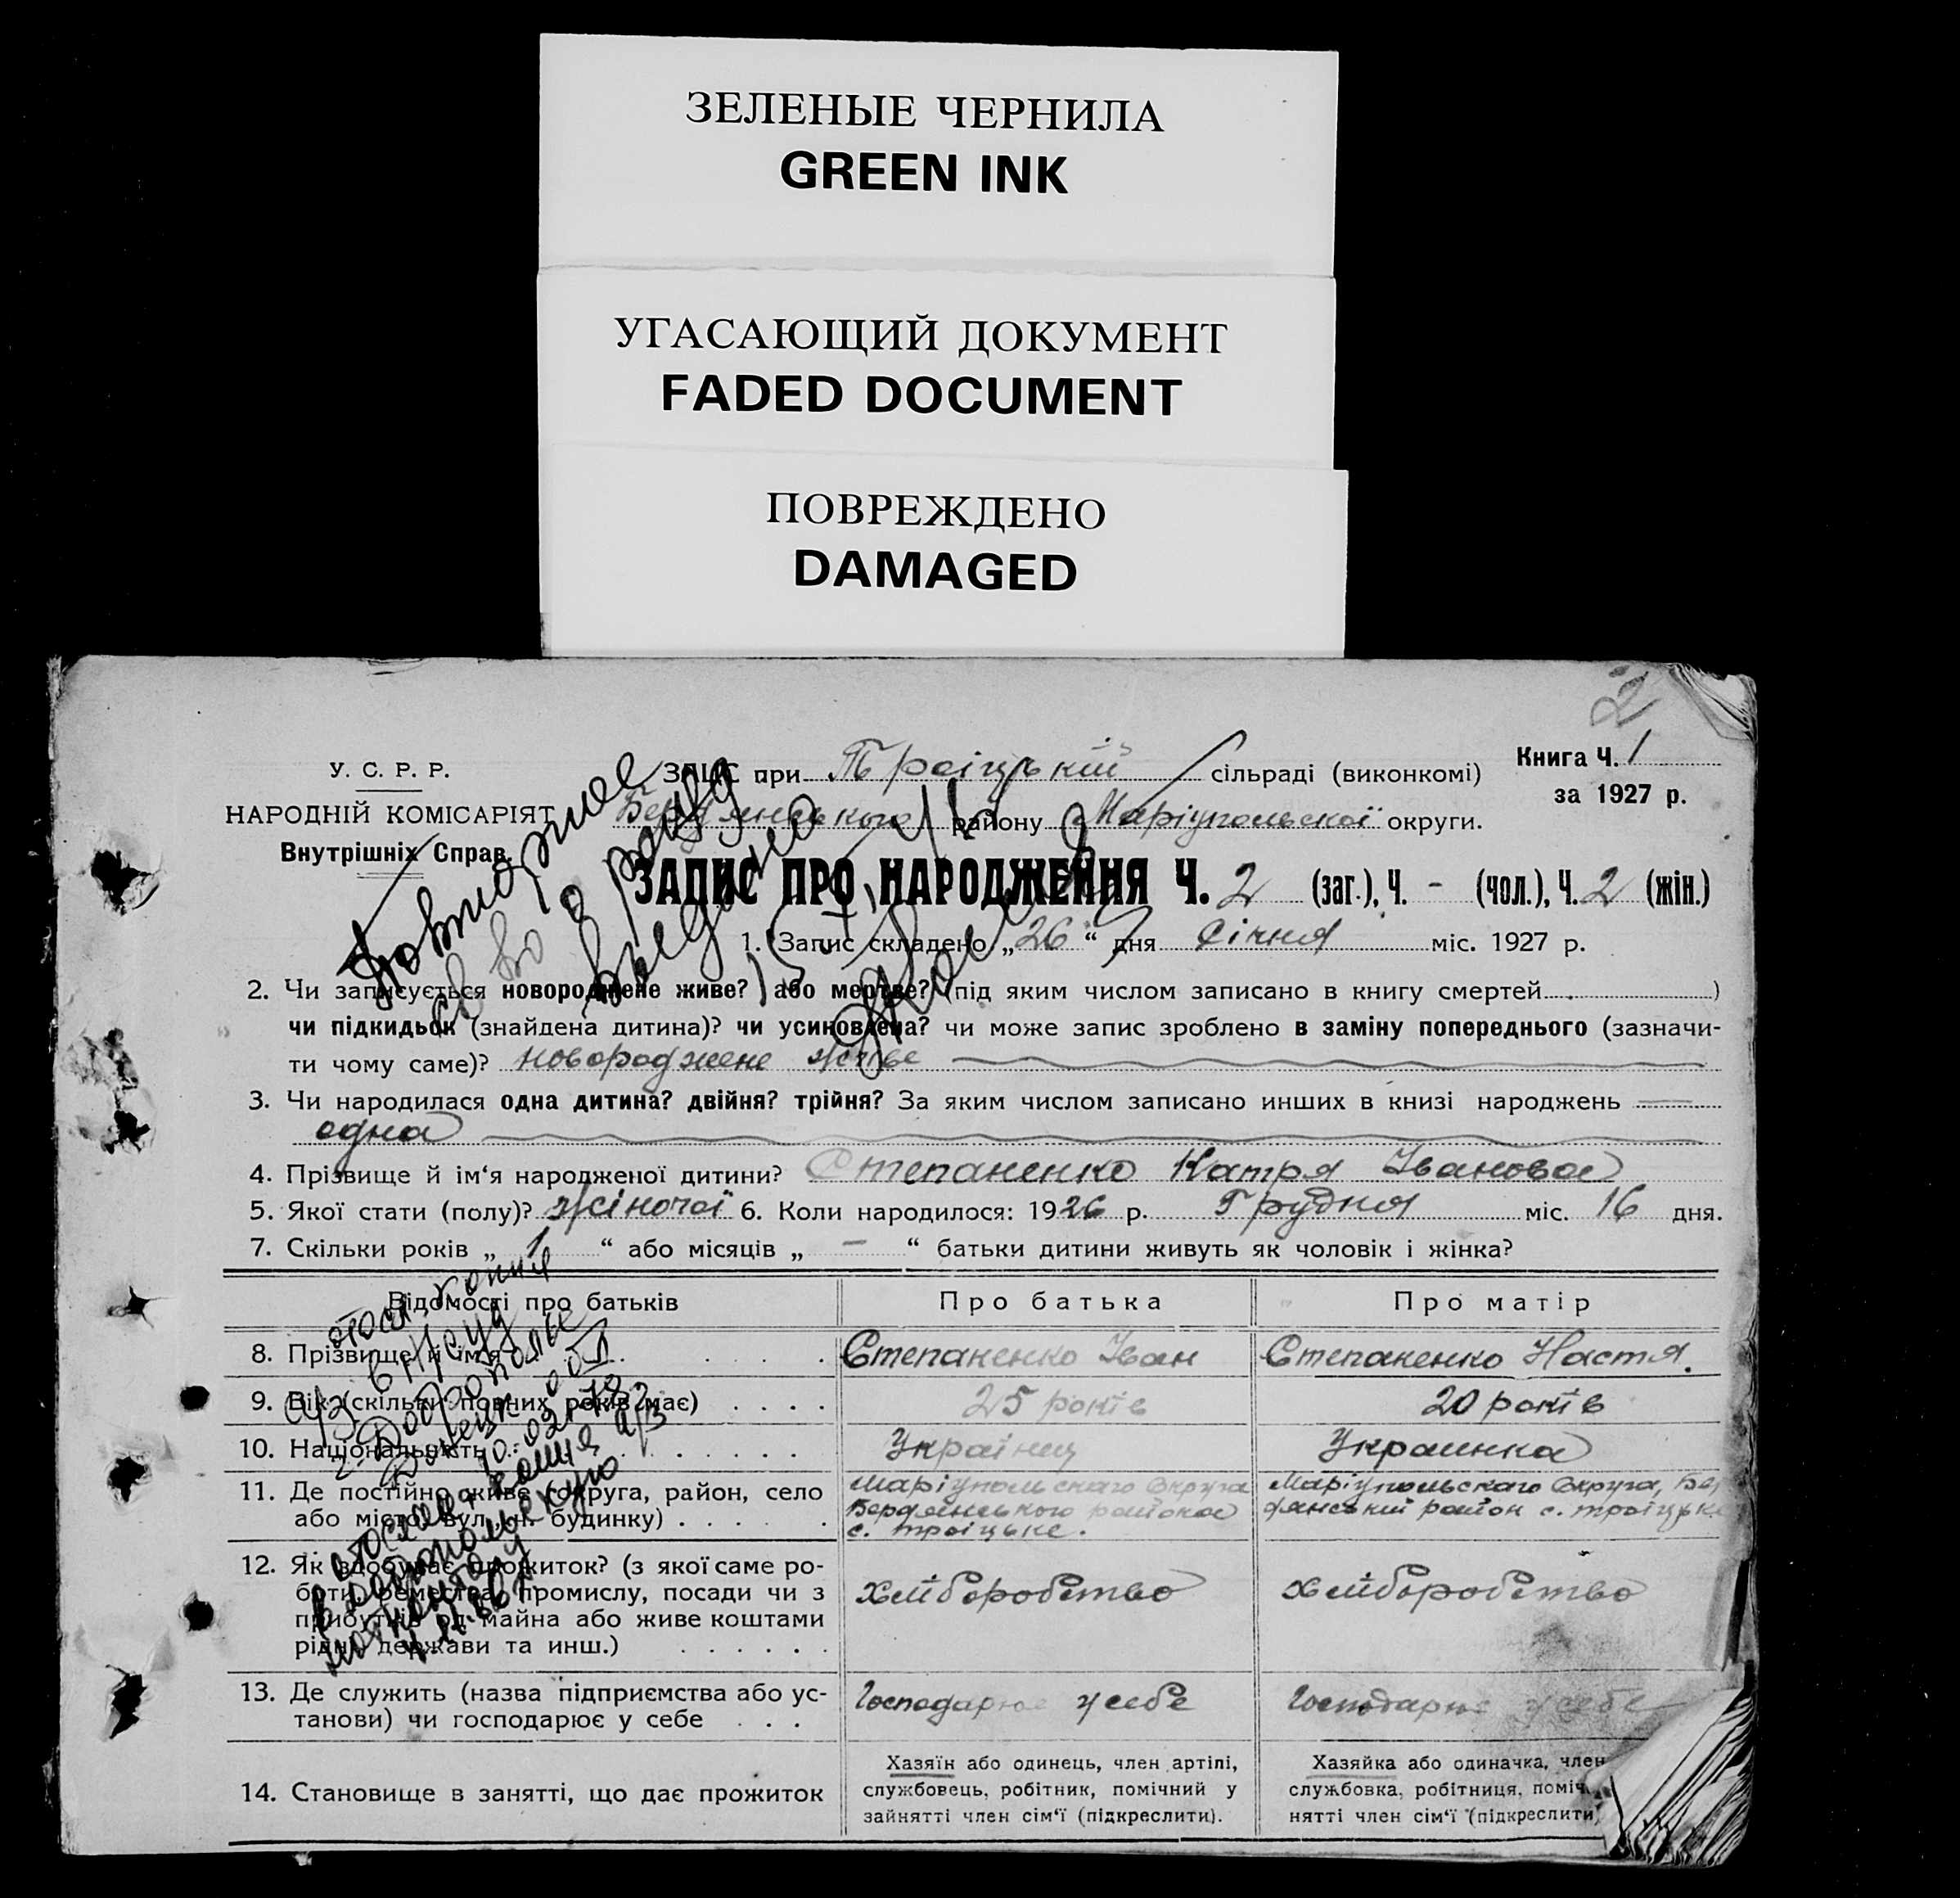 ЗЕЛЕНЫЕ ЧЕРНИЛА
GREEN INK
УГАСАЮЩИЙ ДОКУМЕНТ
FADED DOCUMENT
ПОВРЕЖДЕНО
DAMAGED
2
У. С. Р. Р.
НАРОДНІЙ КОМІСАРІЯТ
Внутрішніх Справ.
ЗАГС при Троіцькій сільраді (виконкомі)
Бердянського району Маріупольскої округи.
Книга Ч. 1
за 1927 р.
ЗАПИС ПРО НАРОДЖЕННЯ Ч. 2 (заг.), Ч. - (чол.), Ч. 2 (жін.)
Повторное
св во
выдано
1. Запис складено „26“ дня Січня міс. 1927 р.
2. Чи записується новороджене живе? або мертве? (під яким числом записано в книгу смертей )
чи підкидьок (знайдена дитина)? чи усиновлена? чи може запис зроблено в заміну попереднього (зазначи-
ти чому саме)? новороджене живе
3. Чи народилася одна дитина? двійня? трійня? За яким числом записано инших в книзі народжень —
одна
4. Прізвище й ім‘я народженої дитини? Степаненко Катря Іванова
5. Якої стати (полу)? жіночої 6. Коли народилося: 1926 р. Грудня міс. 16 дня.
7. Скільки років „ 1 “ або місяців „ – “ батьки дитини живуть як чоловік і жінка?
Відомості про батьків
Про батька
Про матір
8. Прізвище й ім‘я
Степаненко Іван
Степаненко Настя.
9. Вік (скільки повних років має)
25 років
20 років
10. Національність
Українц
Украинка
11. Де постійно живе (округа, район, село
або місто, вул., н. будинку)
Маріупольскаго Округа
Бердянського района
с. троіцьке.
Маріупольскаго Округа, Бер
дянський район с. троіцьке
12. Як здобуває прожиток? (з якої саме ро-
боти, ремества, промислу, посади чи з
прибутків од майна або живе коштами
рідні, держави та инш.)
хлиборобство
хлиборобство
13. Де служить (назва підприємства або ус-
танови) чи господарює у себе
Господарює у себе
Господарює у себе
14. Становище в занятті, що дає прожиток
Хазяїн або одинець, член артілі,
службовець, робітник, помічний у
зайнятті член сім‘ї (підкреслити).
Хазяйка або одиначка, член
службовка, робітниця, поміч
нятті член сім‘ї (підкреслити)
копия